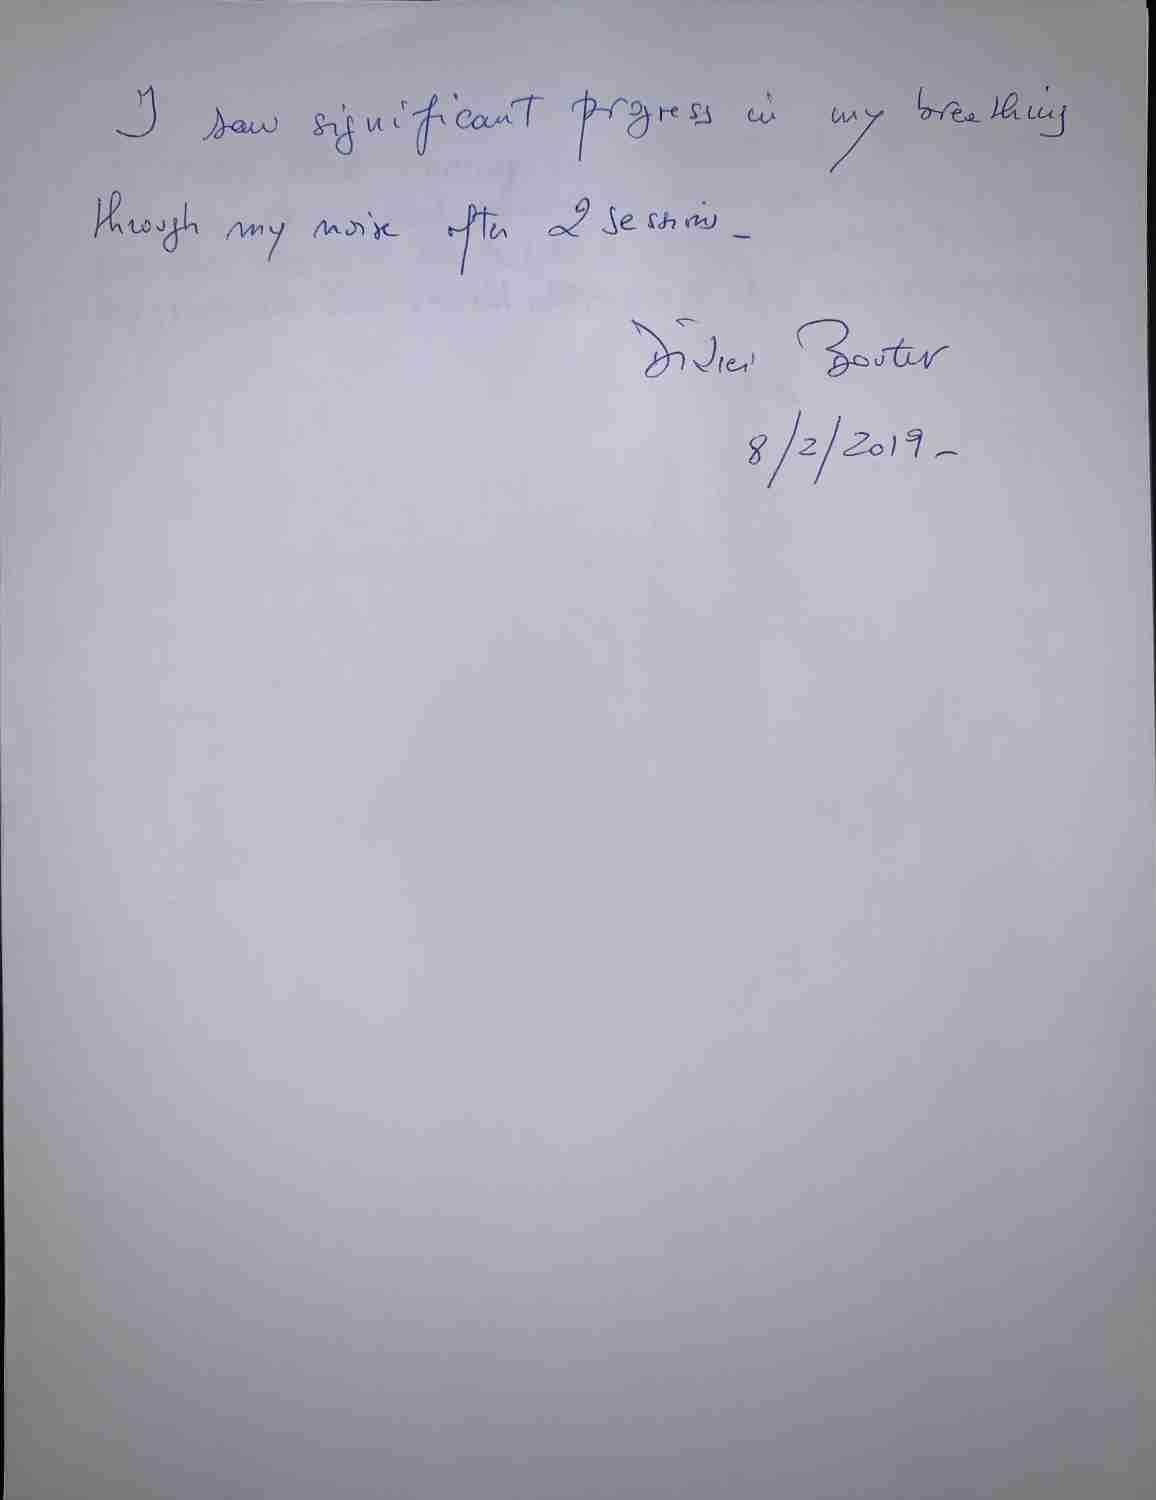 I saw significant progress in my breathing
through my noise after 2 session_
Didier Bouter
8/2/2019_